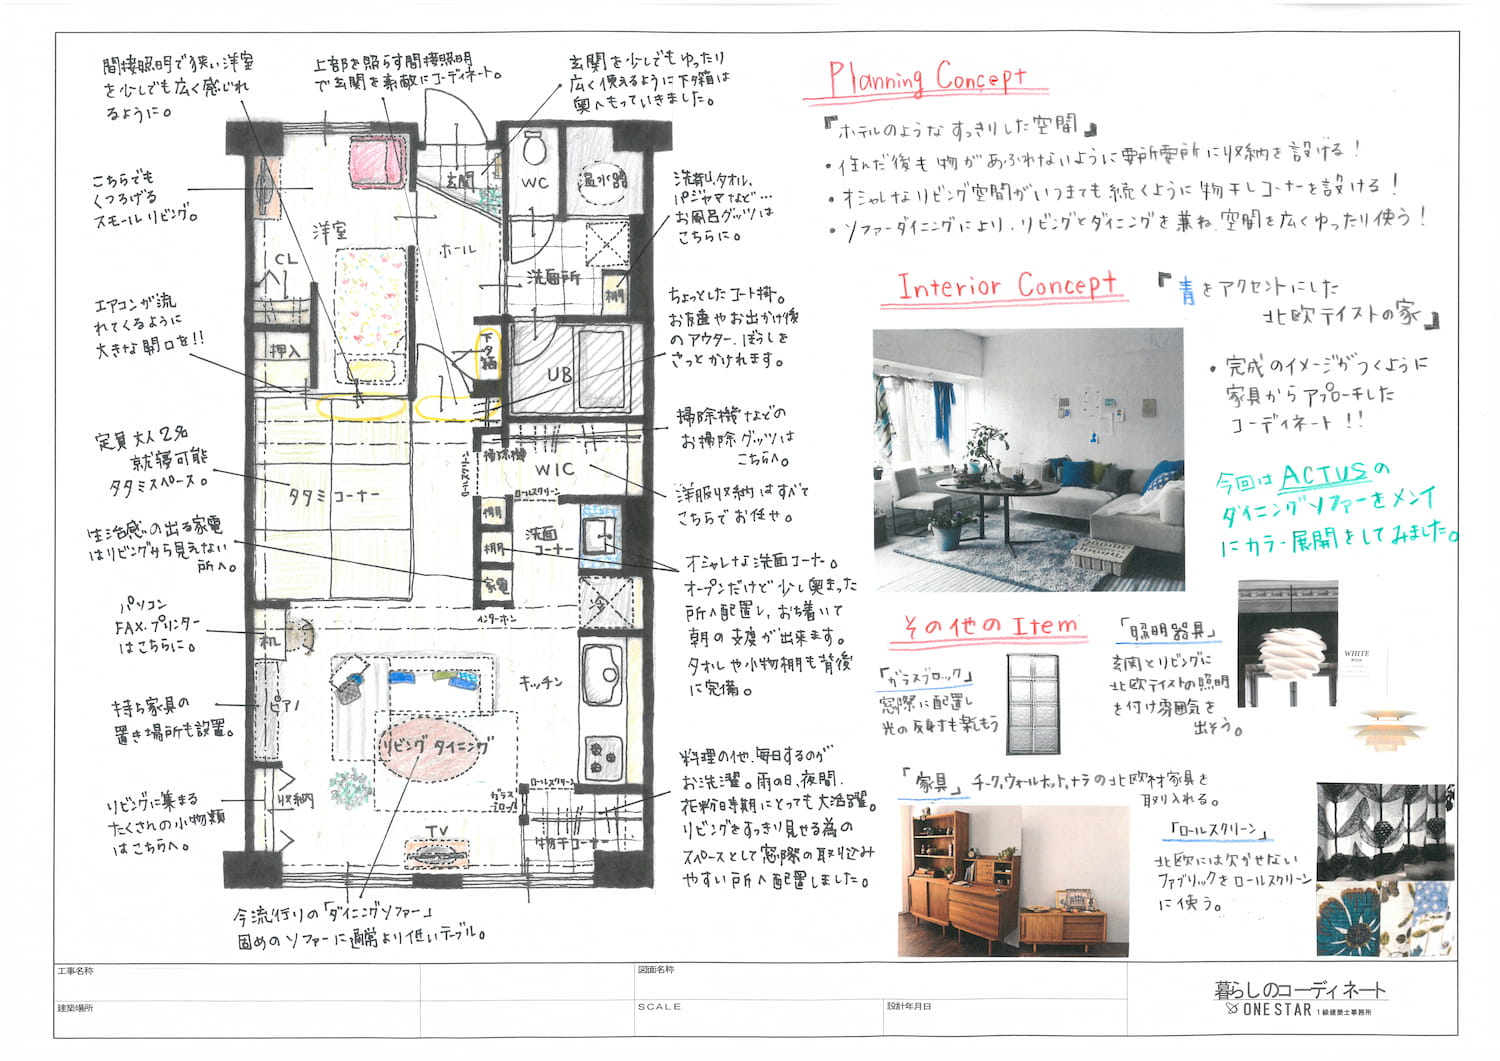 間接照明で狭い洋室
を少しでも広く感じれ
るように。
上部を照らす間接照明
で玄関を素敵にコーディネート。
玄関を少しでもゆったり
広く使えるように下タ箱は
奥へもっていきました。
こちらでも
くつろげる
スモールリビング。
エアコンが流
れてくるように
大きな開口を!!
定員大人2名
就寝可能
タタミスペース。
生活感の出る家電
はリビングから見えない
所へ。
パソコン
FAX.プリンター
はこちらに。
持ち家具の
置き場所も設置。
リビングに集まる
たくさんの小物類
はこちらへ。
今流行りの「ダイニングソファー」
固めのソファーに通常より低いテーブル。
洗剤、タオル、
パジャマなど…
お風呂グッツは
こちらに。
ちょっとしたコート掛。
お友達やお出かけ後
のアウター、ぼうしを
さっとかけれます。
掃除機などの
お掃除グッツは
こちらへ。
洋服収納はすべて
こちらでお任せ。
オシャレな洗面コーナー。
オープンだけど少し奥まった
所へ配置し、おち着いて
朝の支度が出来ます。
タオルや小物棚も背後
に完備。
料理の他、毎日するのが
お洗濯。雨の日、夜間、
花粉日時期にとっても大活躍。
リビングをすっきり見せる為の
スペースとして窓際の取り込み
やすい所へ配置しました。
玄関
WC
温水器
洋室
ホール
CL
洗面所
棚
押入
下タ箱
UB
掃除機
WIC
ロールスクリーン
タタミコーナー
棚
洗面
コーナー
棚
家電
冷
インターホン
机
キッチン
ピアノ
リビングダイニング
収納
ガラス
ブロック
ロールスクリーン
TV
物干コーナー
Planning Concept
『ホテルのようなすっきりした空間』
・住んだ後も物があふれないように要所要所に収納を設ける!
・オシャレなリビング空間がいつまでも続くように物干しコーナーを設ける!
・ソファーダイニングにより、リビングとダイニングを兼ね、空間を広くゆったり使う!
Interior Concept
『青をアクセントにした
北欧テイストの家』
・完成のイメージがつくように
家具からアプローチした
コーディネート!!
今回はACTUSの
ダイニングソファーをメンイ
にカラー展開をしてみました。
その他のItem
「ガラスブロック」
窓際に配置し
光の反射も楽しもう
「照明器具」
玄関とリビングに
北欧テイストの照明
を付け雰囲気を
出そう。
WHITE
「家具」チーク,ウォールナット,ナラの北欧材家具を
取り入れる。
「ロールスクリーン」
北欧には欠かせない
ファブリックをロールスクリーン
に使う。
工事名称
図面名称
建築場所
SCALE
設計年月日
暮らしのコーディネート
ONE STAR 1級建築士事務所